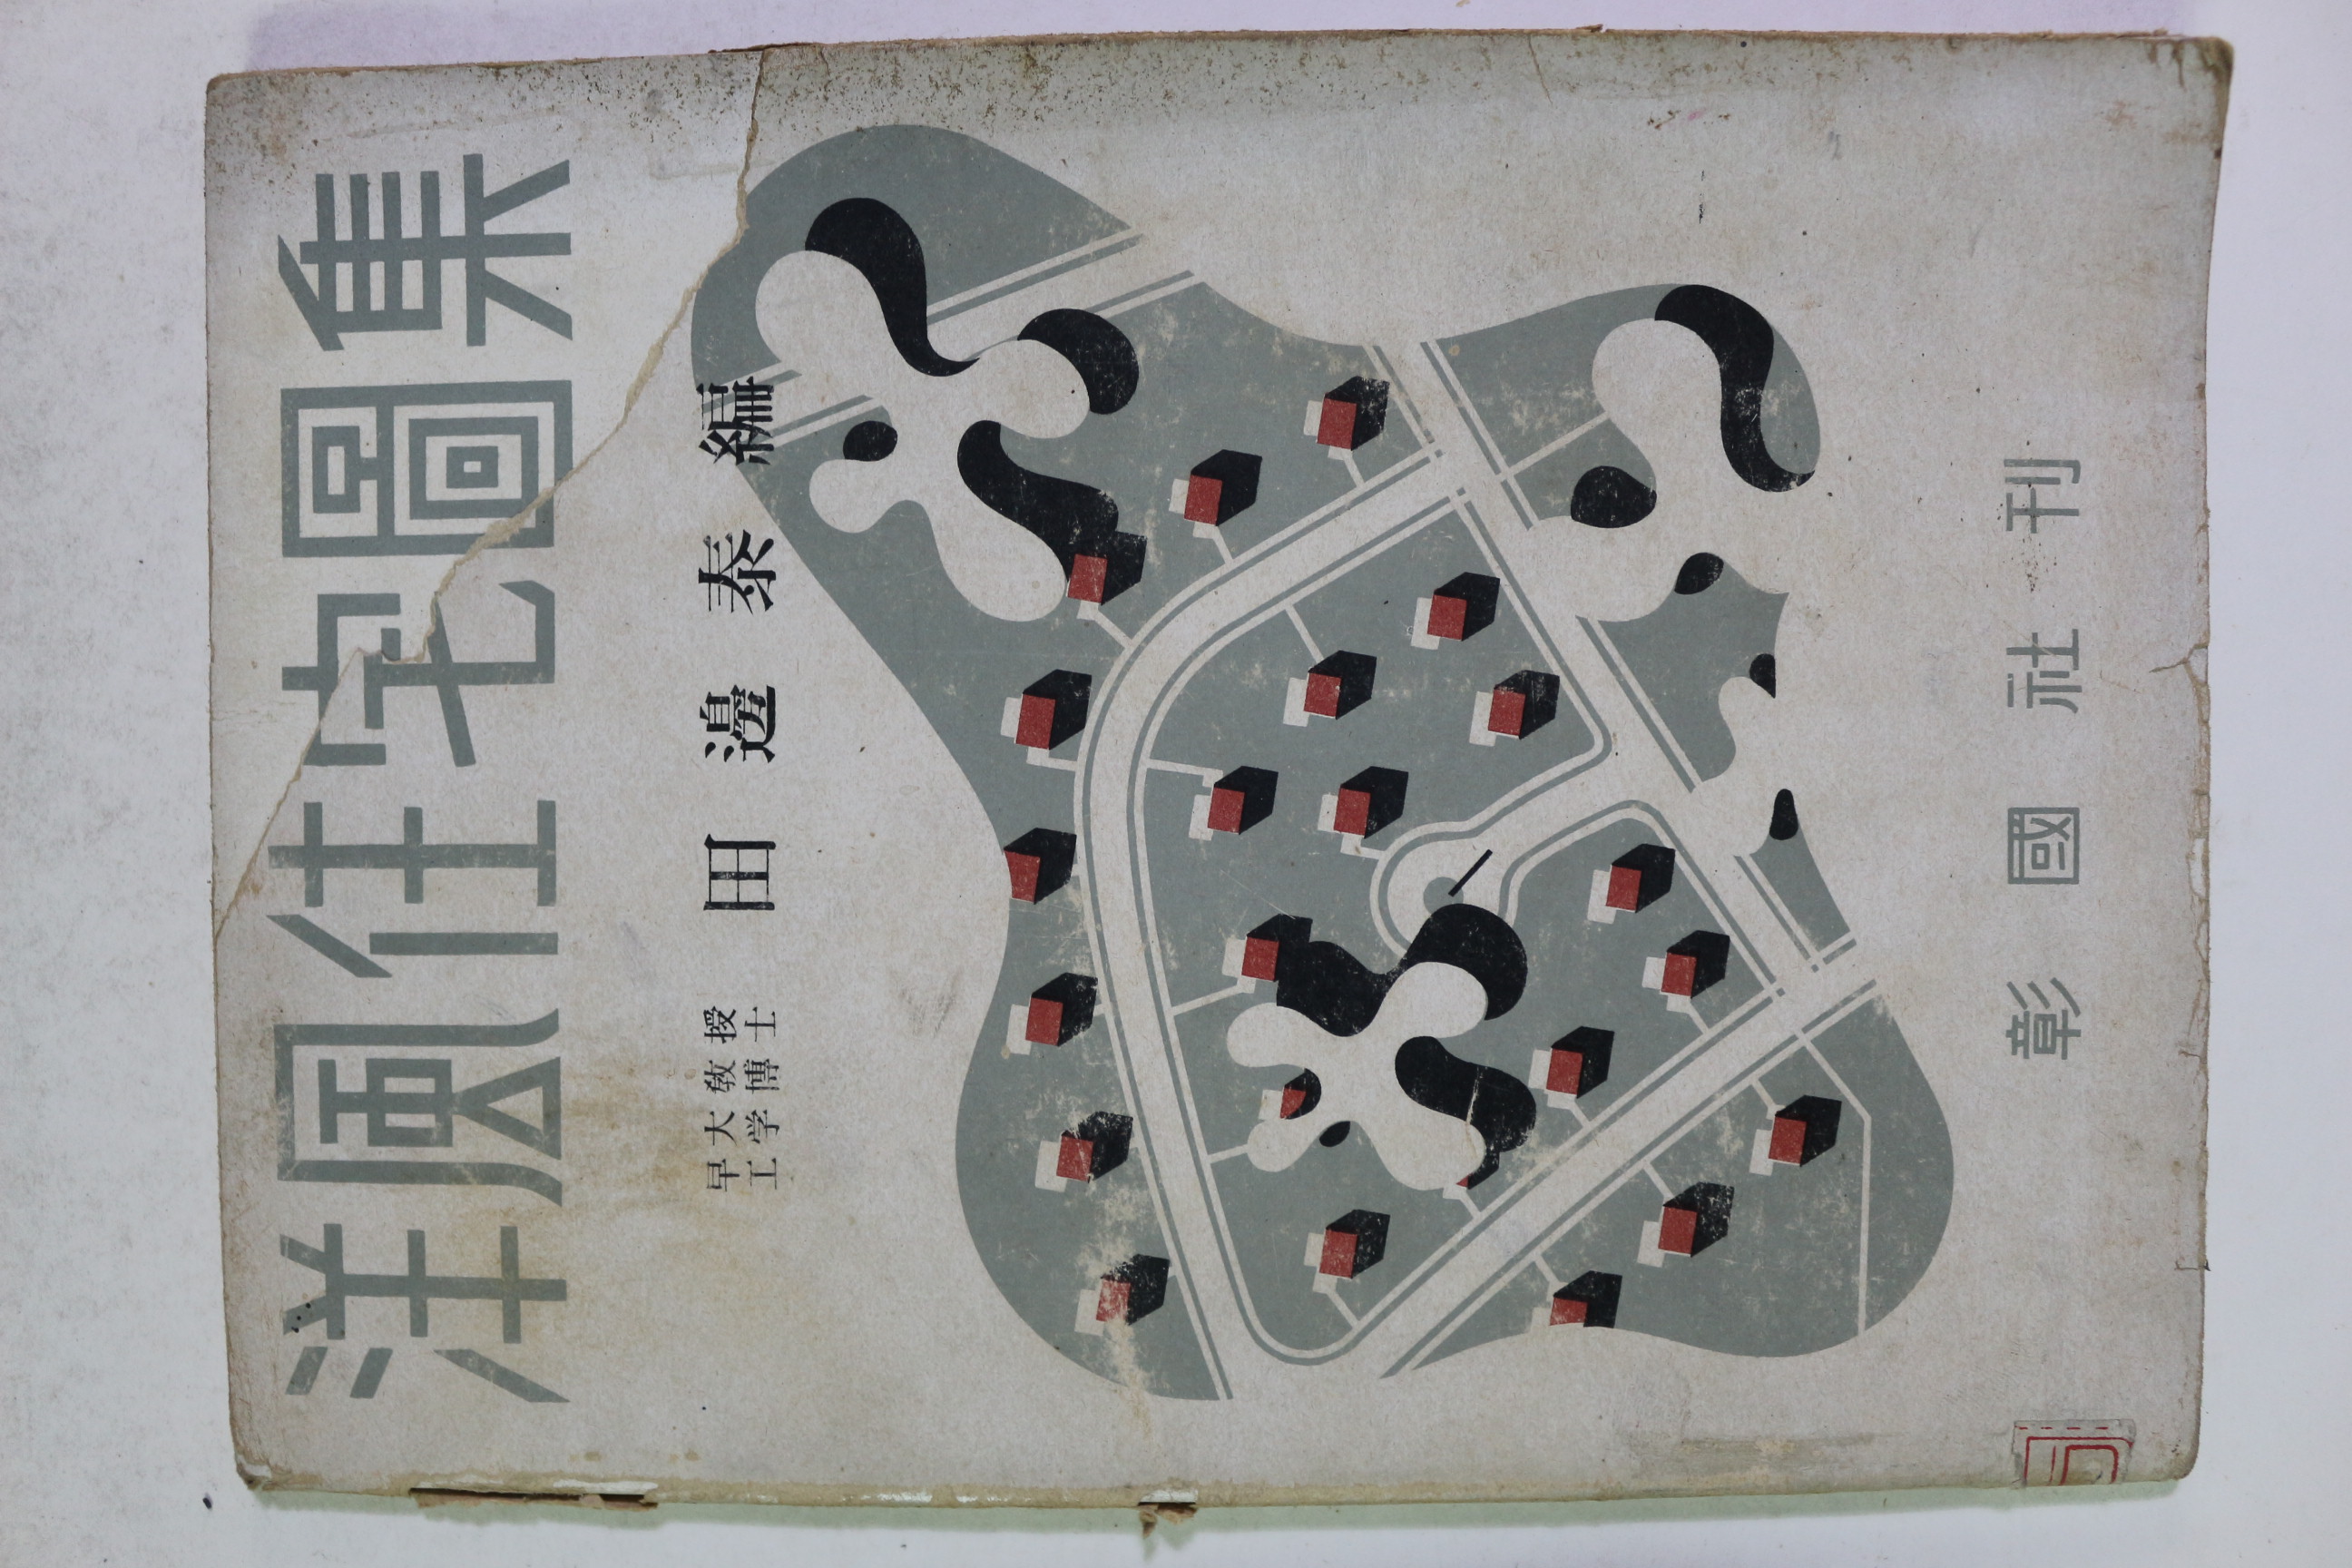 洋風住宅圖集
早大教授
工学博士
田邊泰編
彰國社刊